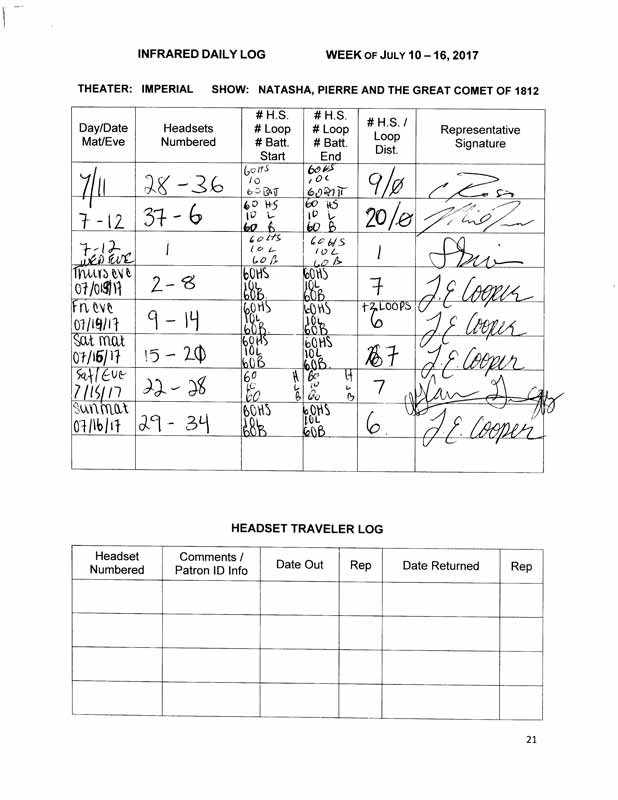 INFRARED DAILY LOG WEEK OF JULY 10 – 16, 2017
THEATER: IMPERIAL SHOW: NATASHA, PIERRE AND THE GREAT COMET OF 1812
Day/Date Mat/Eve Headsets Numbered # H.S. # Loop # Batt. Start # H.S. # Loop # Batt. End # H.S. / Loop Dist. Representative Signature
7/11 28 – 36 60HS 10 60BATT 60HS 10L 60BATT 9/0
7-12 37 - 6 60 HS 10 L 60 B 60 HS 10 L 60 B 20/0
7-12 WED EVE 1 60HS 10L 60B 60HS 10L 60B 1
Thurs eve 2 - 8 60HS 10L 60B 60HS 10L 60B 7 J.E. Cooper
Fri eve 07/14/17 9 - 14 60HS 10L 60B 60HS 10L 60B +2 LOOPS 6 J.E. Cooper
Sat mat 15 - 20 60HS 10L 60B 60HS 10L 60B 7 J.E. Cooper
Sat/Eve 7/15/17 22 - 28 60 H 10 L 60 B 60 H 10 L 60 B 7
Sun mat 07/16/17 29 - 34 60HS 10L 60B 60HS 10L 60B 6. J.E. Cooper
HEADSET TRAVELER LOG
Headset Numbered Comments / Patron ID Info Date Out Rep Date Returned Rep
21